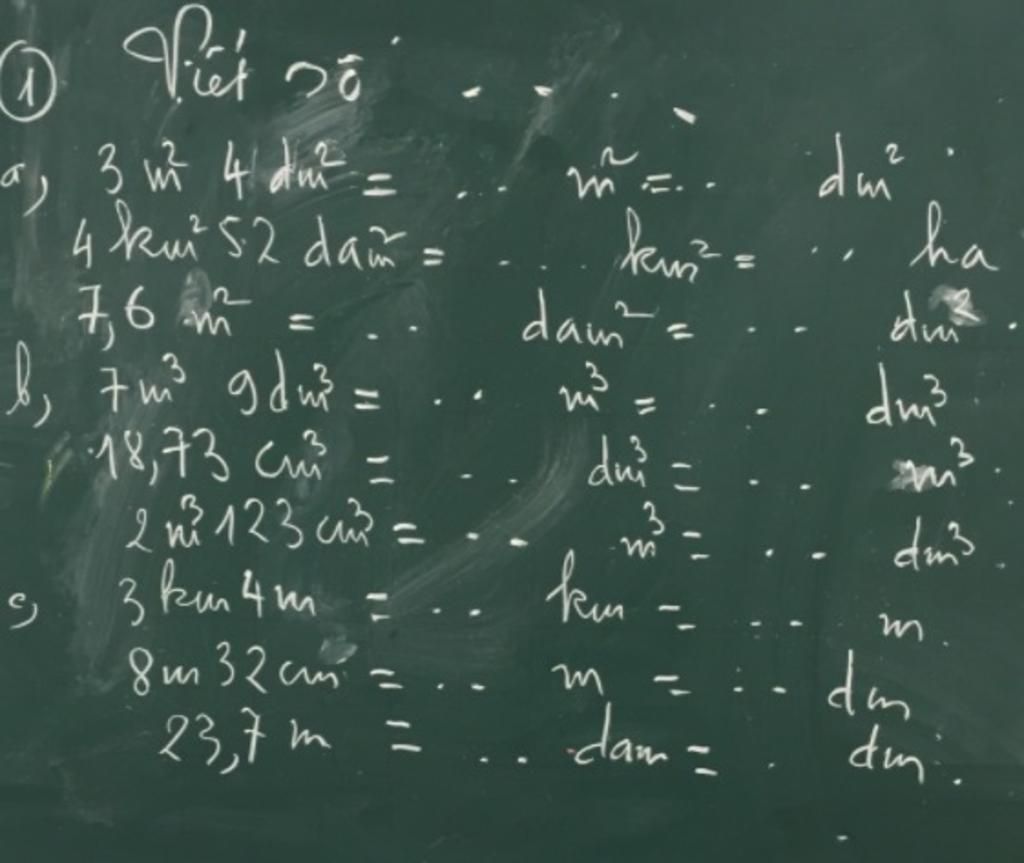 ① Viết số . . . .
a, 3 m² 4 dm² = ... m² = .. dm²
4 km² 52 dam² = .... km² = .. ha
7,6 m² = .. dam² = .. dm².
b, 7m³ 9dm³ = .. m³ = .. dm³
18,73 cm³ = ... dm³ = .. m³.
2m³ 123 cm³ = .. m³ = .. dm³.
c, 3 km 4 m = .. km = ... m.
8m 32 cm = ... m = ... dm
23,7 m = ... dam = . dm.